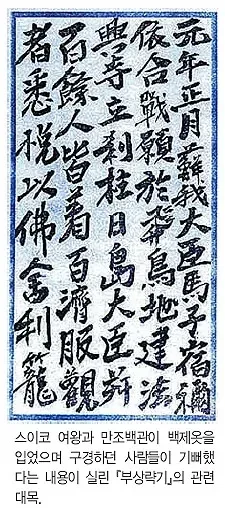 元年正月蘇我大臣馬子宿禰
依合戰願於飛鳥地建法
興寺立刹柱日島大臣并
百餘人皆着百濟服觀
者悉悅以佛舍利籠
스이코 여왕과 만조백관이 백제옷을
입었으며 구경하던 사람들이 기뻐했
다는 내용이 실린 『부상략기』의 관련
대목.